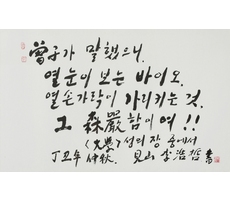 曾子가 말했으니,
열눈이 보는 바이오,
열손가락이 가리키는 것.
그 森嚴함이여!!
(大學) 성의장 중에서
丁丑年 仲秋. 見山 李浩哲 書